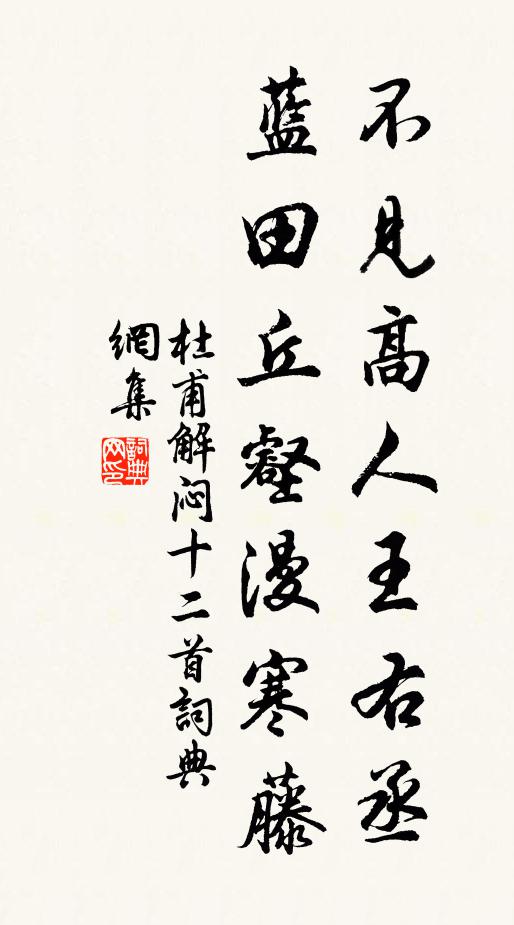 不見高人王右丞
藍田丘壑漫寒藤
杜甫解闷十二首詞典
網集
詞典
网印